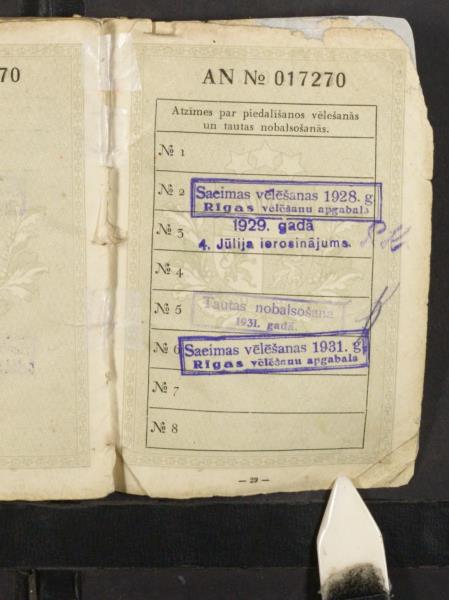 70
AN № 017270
Atzīmes par piedalīšanos vēlešanās
un tautas nobalsošanās.
№ 1
№ 2 Saeimas vēlēšanas 1928. g.
Rīgas vēlēšanu apgabals
№ 3 1929. gadā
4. Jūlija ierosinājums.
№ 4
№ 5 Tautas nobalsošana
1931. gadā.
№ 6 Saeimas vēlēšanas 1931. g.
Rīgas vēlēšanu apgabals
№ 7
№ 8
— 29 —